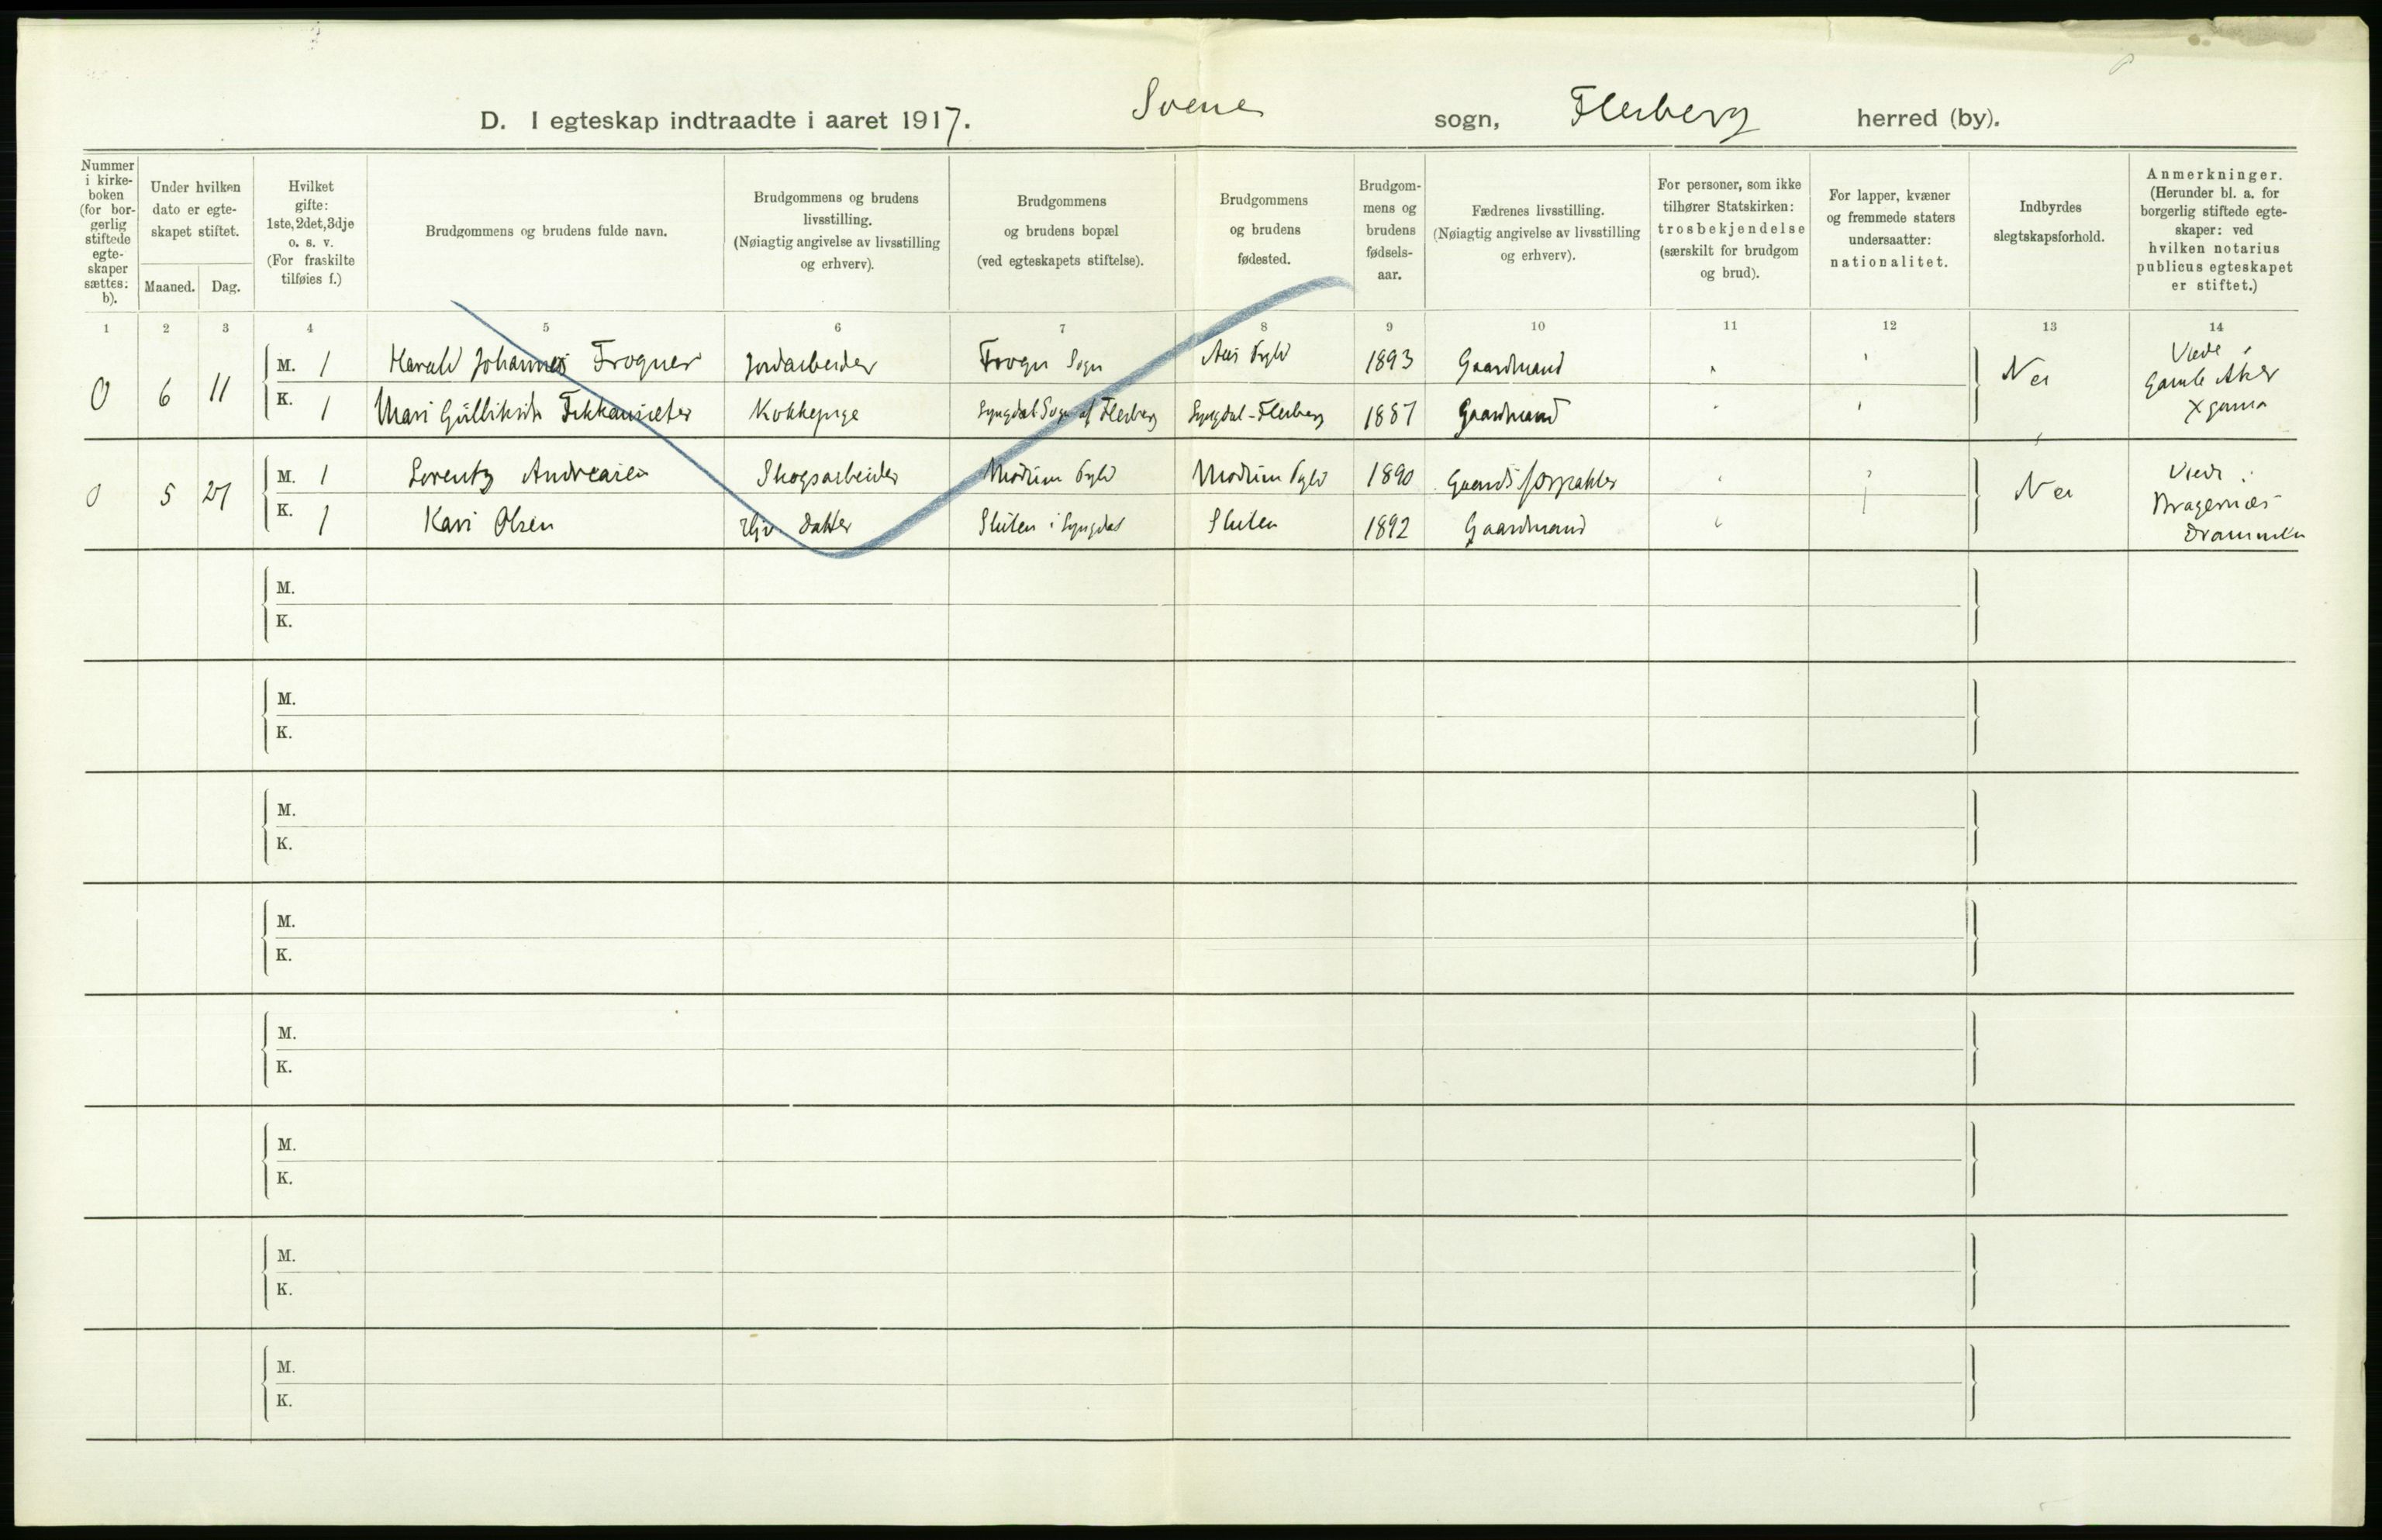 D. I egteskap indtraadte i aaret 1917. Svene sogn, Flesberg herred (by).
Nummer i kirkeboken (for borgerlig stiftede egteskaper sættes: b).
Under hvilken dato er egteskapet stiftet.
Maaned. Dag.
Hvilket gifte: 1ste, 2det, 3dje o. s. v. (For fraskilte tilføies f.)
Brudgommens og brudens fulde navn.
Brudgommens og brudens livsstilling. (Nøiagtig angivelse av livsstilling og erhverv).
Brudgommens og brudens bopæl (ved egteskapets stiftelse).
Brudgommens og brudens fødested.
Brudgommens og brudens fødselsaar.
Fædrenes livsstilling. (Nøiagtig angivelse av livsstilling og erhverv).
For personer, som ikke tilhører Statskirken: trosbekjendelse (særskilt for brudgom og brud).
For lapper, kvæner og fremmede staters undersaatter: nationalitet.
Indbyrdes slegtskapsforhold.
Anmerkninger. (Herunder bl. a. for borgerlig stiftede egteskaper: ved hvilken notarius publicus egteskapet er stiftet.)
1 2 3 4 5 6 7 8 9 10 11 12 13 14
0 6 11
M. 1 Harald Johannes Frogner Jordarbeider Frogn Sogn 1893 Gaardmand
K. 1 Mari Gulliksdr Kokkepige Lyngdal Sogn af Flesberg Lyngdal-Flesberg 1887 Gaardmand
Nei
Viede i Gamle Aker
0 5 27
M. 1 Lorentz Andreasen Skogsarbeider Modum Pgld Modum Pgld 1890
K. 1 Kari Olsen Datter i Lyngdal 1892 Gaardmand
Nei
Viedt i Bragernæs Drammen
M.
K.
M.
K.
M.
K.
M.
K.
M.
K.
M.
K.
M.
K.
M.
K.